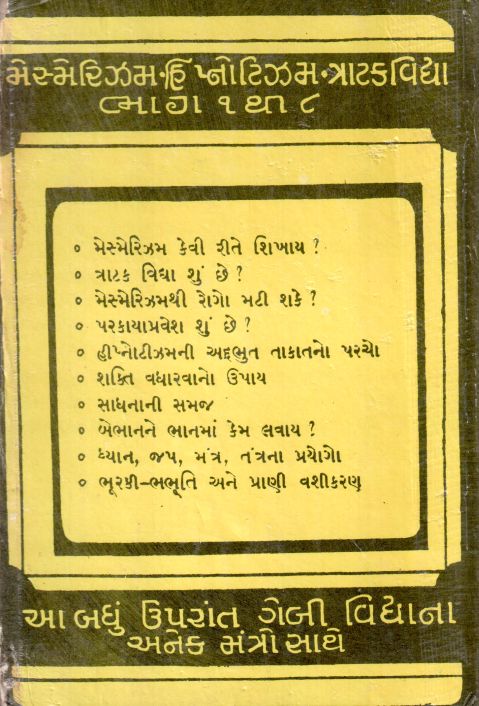 મેસ્મેરિઝમ·હિપ્નોટિઝમ·ત્રાટકવિદ્યા
ભાગ ૧ થી ૮
૦ મેસ્મેરિઝમ કેવી રીતે શિખાય ?
૦ ત્રાટક વિદ્યા શું છે ?
૦ મેસ્મેરિઝમથી રોગો મટી શકે ?
૦ પરકાયાપ્રવેશ શું છે ?
૦ હીપ્નોટીઝમની અદ્દભુત તાકાતનો પરચો
૦ શક્તિ વધારવાનો ઉપાય
૦ સાધનાની સમજ
૦ બેભાનને ભાનમાં કેમ લવાય ?
૦ ધ્યાન, જપ, મંત્ર, તંત્રના પ્રયોગો
૦ ભૂરકી-ભભૂતિ અને પ્રાણી વશીકરણ
આ બધું ઉપરાંત ગેબી વિદ્યાના
અનેક મંત્રો સાથે